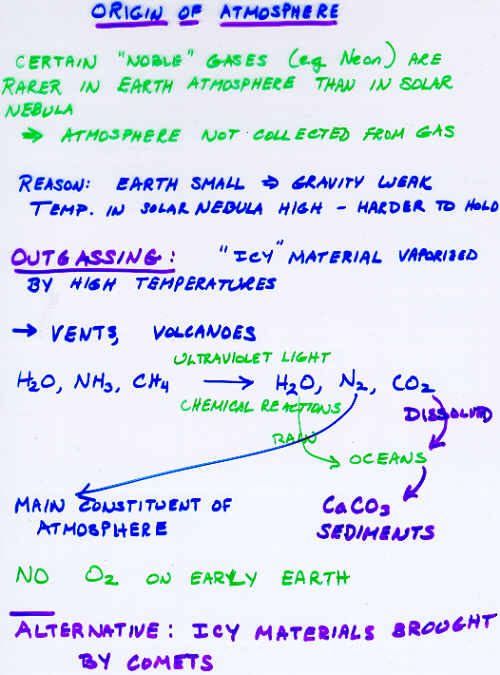 ORIGIN OF ATMOSPHERE
CERTAIN "NOBLE" GASES (e.g. Neon) ARE
RARER IN EARTH ATMOSPHERE THAN IN SOLAR
NEBULA
⇒ ATMOSPHERE NOT COLLECTED FROM GAS
REASON: EARTH SMALL ⇒ GRAVITY WEAK
TEMP. IN SOLAR NEBULA HIGH - HARDER TO HOLD
OUTGASSING: "ICY" MATERIAL VAPORIZED
BY HIGH TEMPERATURES
→ VENTS, VOLCANOES
ULTRAVIOLET LIGHT
H2O, NH3, CH4 → H2O, N2, CO2
CHEMICAL REACTIONS
DISSOLVED
RAIN
OCEANS
MAIN CONSTITUENT OF
ATMOSPHERE
CaCO3
SEDIMENTS
NO O2 ON EARLY EARTH
ALTERNATIVE: ICY MATERIALS BROUGHT
BY COMETS